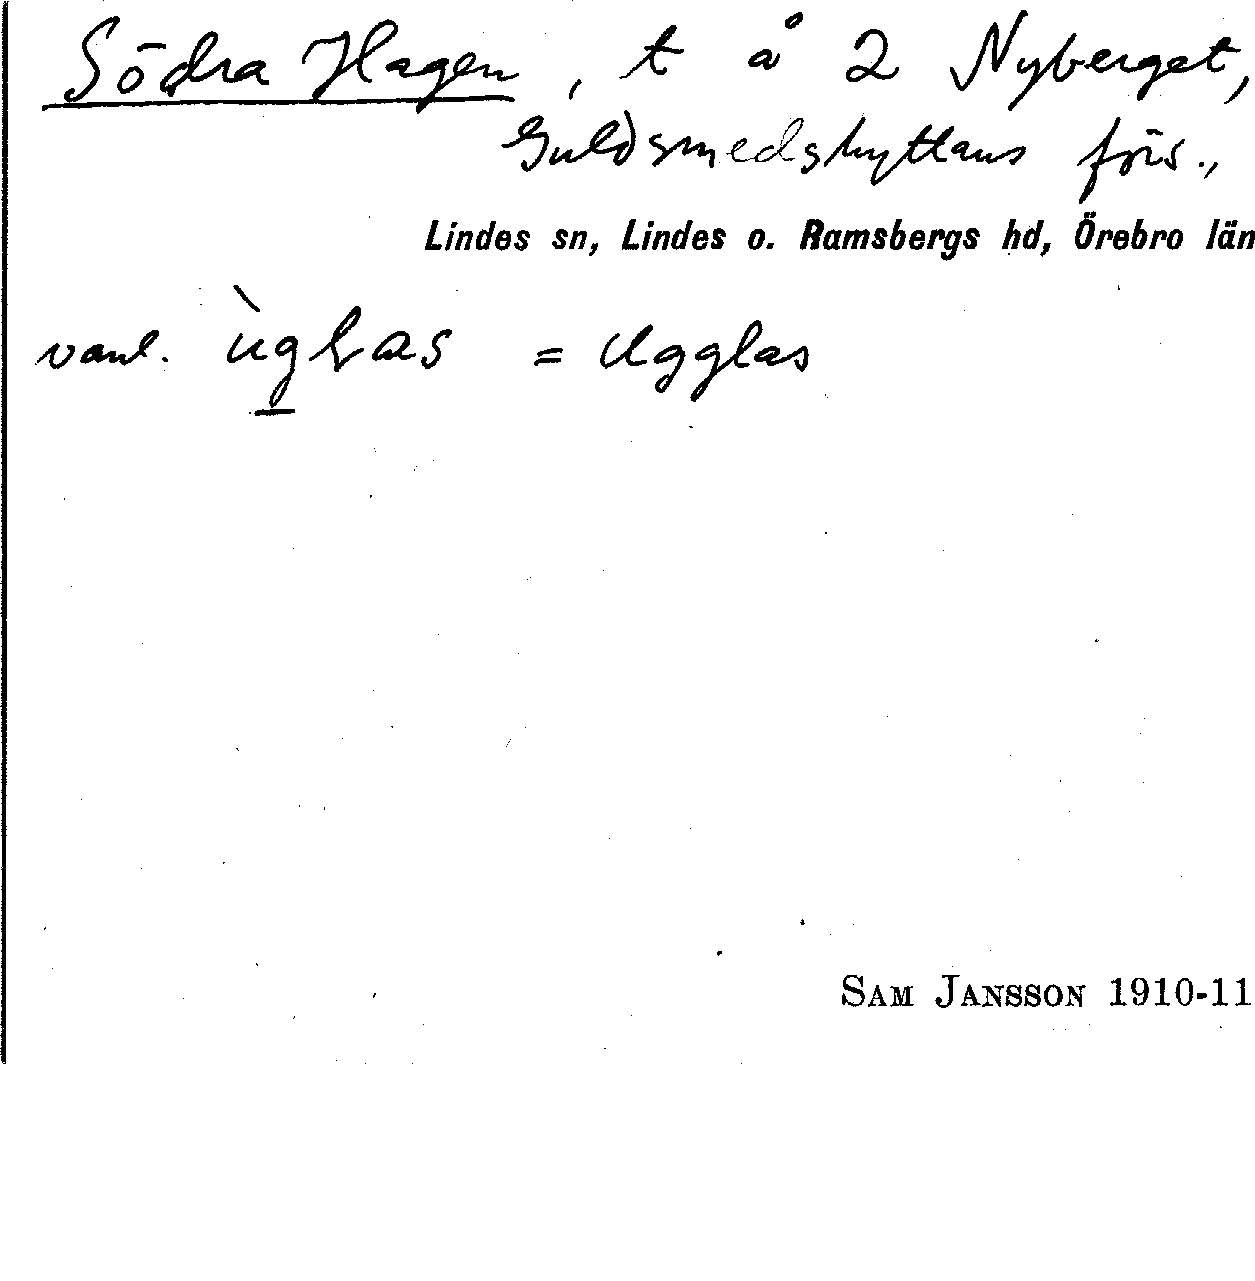 Södra Hagen, t å 2 Nyberget,
Guldsmedshyttans förs.,
Lindes sn, Lindes o. Ramsbergs hd, Örebro län
vanl. ùgɫas = Ugglas
SAM JANSSON 1910-11